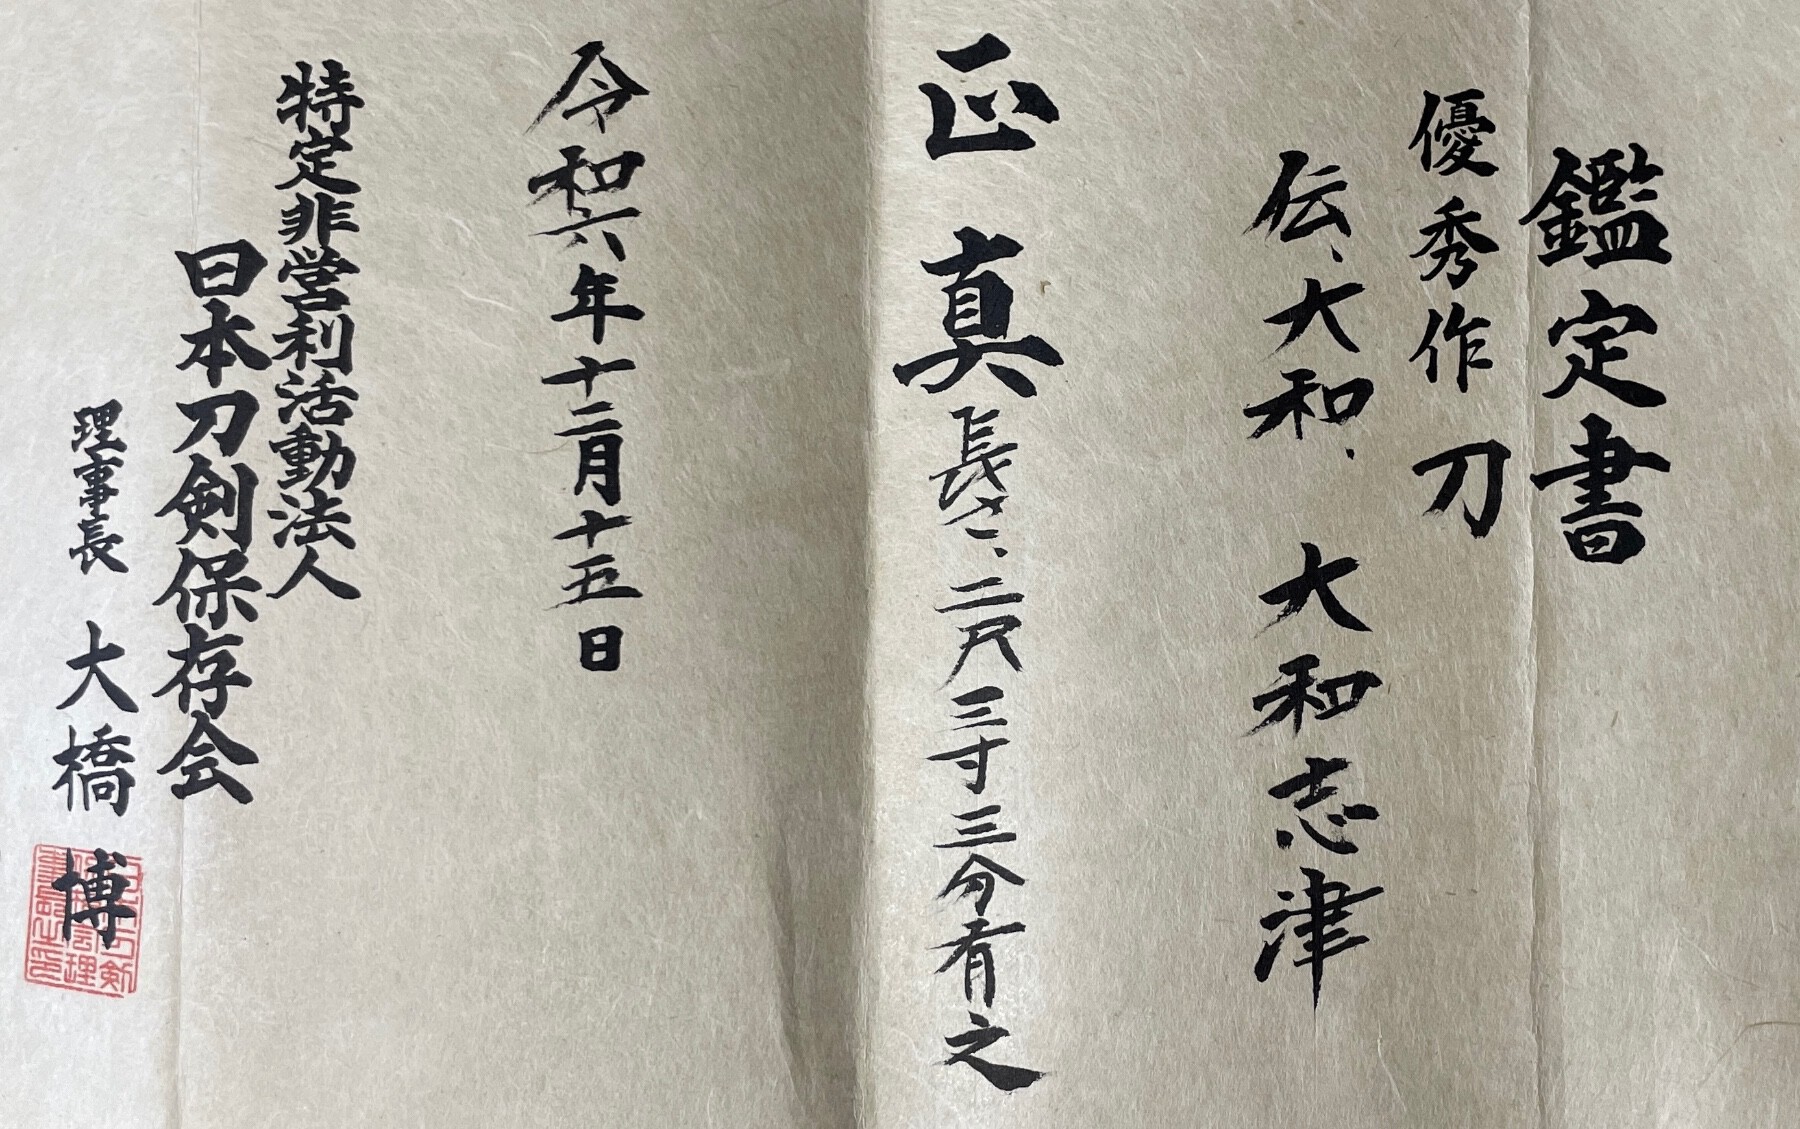 鑑定書
優秀作 刀
伝、大和、大和志津
正真 長さ、二尺三寸三分有之
令和六年十二月十五日
特定非営利活動法人
日本刀剣保存会
理事長 大橋 博